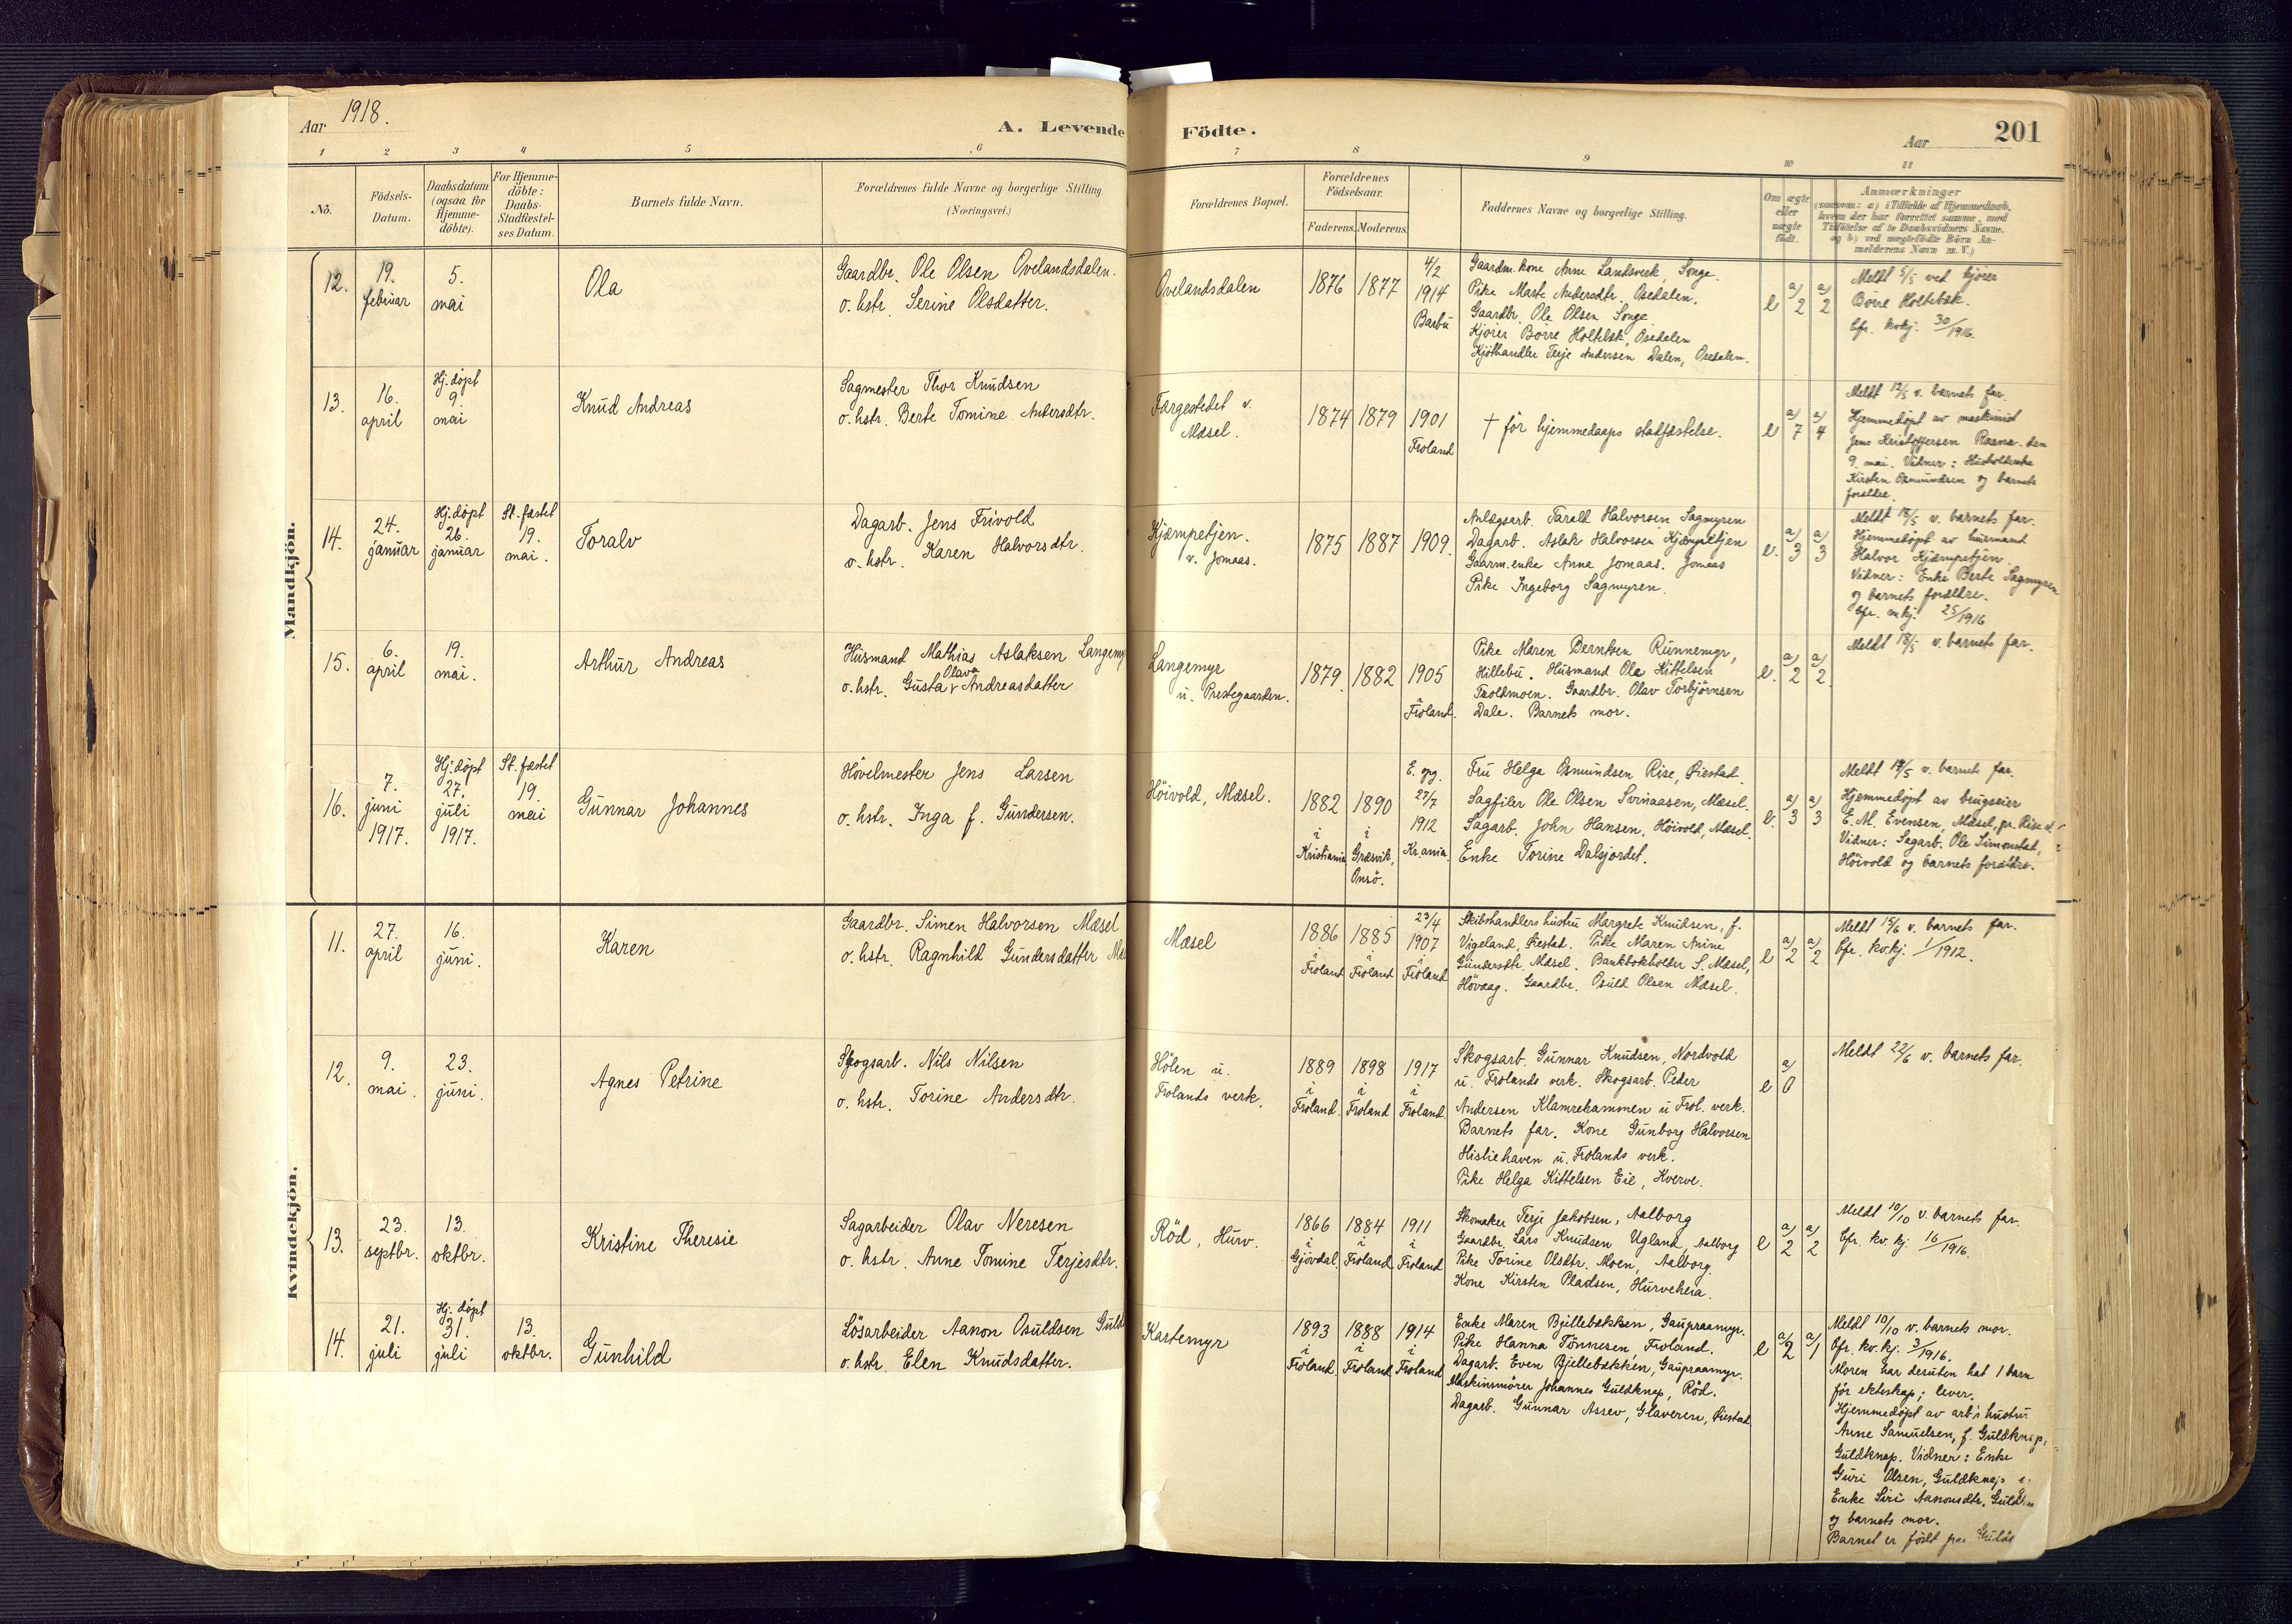 Aar 1918.
A. Levende Födte.
Aar
201
1 2 3 4 5 6 7 8 9 10 11
No.
Födsels-Datum.
Daabsdatum (ogsaa for Hjemme-döbte).
For Hjemme-döbte: Daabs-Stadfæstel-ses Datum.
Barnets fulde Navn.
Forældrenes fulde Navne og borgerlige Stilling.
(Næringsvei.)
Forældrenes Bopæl.
Forældrenes Födselsaar.
Faderens. Moderens.
Faddernes Navne og borgerlige Stilling.
Om ægte eller uægte födt.
Anmærkninger
Mandkjön.
12. 19. februar
5. mai
Ola
Gaardbr. Ole Olsen Ovelandsdalen.
o. hstr. Serine Olsdatter.
Ovelandsdalen
1876 1877
4/2 1914 Barbu
Gaardm. kone Anne Landsverk, Songe.
Pike Marte Andersdtr. Osedalen.
Gaardbr. Ole Olsen Songe
Kjører Börre Holtebek, Osedalen
Kjöthandler Terje Andersen Dalen, Osedalen.
e a/2 a/2
Meldt 5/5 ved kjører
Börre Holtebæk.
Cfr. kvkj. 30/1916.
13. 16. april
Hj. döpt 9. mai
Knud Andreas
Sagmester Thor Knudsen
o. hstr. Berte Tomine Andersdtr.
Færgestedet v.
Mæsel.
1874 1879 1901 Froland
† för hjemmedaaps stadfæstelse.
e a/7 a/4
Meldt 12/5 v. barnets far.
Hjemmedöpt av maskinist
Jens Kristoffersen den
9. mai. Vidner:
Kirsten Osmundsen og barnets
forældre.
14. 24. januar
Hj. döpt 26. januar
St. fæstet 19. mai.
Toralv
Dagarb. Jens Frivold
o. hstr. Karen Halvorsdtr.
Kjæmpetjen.
v. Jomaas.
1875 1887 1909.
Anlægsarb. Taralt Halvorsen Sagmyren
Dagarb. Aslak Halvorsen Kjæmpetjen
Gaarm. enke Anna Jomaas. Jomaas
Pike Ingeborg Sagmyren.
e. a/3 a/3
Meldt 18/5 v. barnets far.
Hjemmedöpt av husmand
Halvor Kjæmpetjen
Vidner: Enke Berte Sagmyren
og barnets forældre.
Cfr. mkj. 25/1916
15. 6. april
19. mai.
Arthur Andreas
Husmand Mathias Aslaksen Langemy
Olava
o. hstr. Gusta Andreasdatter
Langemyr
u. Prestegaarden.
1879. 1882 1905 i Froland.
Pike Maren Berntsen Runnemyr,
Hillebu. Husmand Ole Kittelsen
Troldmoen. Gaardbr. Olav Torbjörnsen
Dale. Barnets mor.
e. a/2 a/2.
Meldt 18/5 v. barnets far.
16. 7. juni 1917.
Hj. döpt 27. juli 1917.
St. fæstet 19. mai
Gunnar Johannes
Hövelmester Jens Larsen
o. hstr. Inga f. Gundersen.
Höivold, Mæsel.
1882 i Kristiania
1890 i Græsvik, Onsö.
27/7 1912 Kr.ania.
Fru Helga Osmundsen Rise, Öiestad.
Sagfiler Ole Olsen Svinaasen, Mæsel.
Sagarb. John Hansen, Höivold, Mæsel.
Enke Torine Dalsjordet.
e. a/3 a/3
Meldt 18/5 v. barnets far.
Hjemmedöpt av brugseier
E. M. Evensen, Mæsel, pr. Rise st
Vidner: Sagarb. Ole Simonstad,
Höivold og barnets forældre.
Kvindekjön.
11. 27. april
16. juni.
Karen
Gaardbr. Simen Halvorsen Mæsel
o. hstr. Ragnhild Gundersdatter Mæ
Mæsel
1886 i Froland
1885 i Froland
23/4 1907 i Froland
Skibshandlers hustru Margrete Knudsen, f.
Vigeland, Öiestad. Pike Maren Anine
Gundersdtr. Mæsel. Bankbokholder S. Mæsel,
Hövaag. Gaardbr. Osuld Olsen Mæsel.
e a/2 a/2
Meldt 15/6 v. barnets far.
Cfr. kv.kj. 1/1912.
12. 9. mai.
23. juni.
Agnes Petrine
Skogsarb. Nils Nilsen
o. hstr. Torine Andersdtr.
Hölen u.
Frolands verk.
1889 i Froland.
1898 i Froland
1917 i Froland.
Skogsarb. Gunnar Knudsen, Nordvold
u. Frolands verk. Skogsarb. Peder
Andersen Klamrehammen u Frol. verk.
Barnets far. Kone Gunborg Halvorsen
Hisliehaven u. Frolands verk.
Pike Helga Kittelsen Eie, Kverve.
e a/0
Meldt 22/6 v. barnets far.
13. 23. septbr.
13. oktbr.
Kristine Theresie
Sagarbeider Olav Neresen
o. hstr. Anne Tomine Terjesdtr.
Röd, Hurv.
1866 i Gjövdal.
1884 i Froland
1911 i Froland
Skomaker Terje Jakobsen, Aalborg
Gaardbr. Lars Knudsen Ugland, Aalborg
Pike Torine Olsdtr. Moen, Aalborg.
Kone Kirsten Pladsen, Hurveheia.
e a/2 a/2
Meldt 10/10 v. barnets far.
Cfr. kv. kj. 16/1916.
14. 21. juli
Hj. döpt 31. juli
13. oktbr.
Gunhild
Lösarbeider Aanon Osuldsen Guld
o. hstr. Elen Knudsdatter.
Kartemyr
1893 i Froland.
1888 i Froland.
1914 i Froland
Enke Maren Bjellebækken, Gaupraamyr.
Pike Hanna Tönnesen, Froland.
Dagarb. Even Bjellebækken, Gaupraamyr.
Maskinsmörer Johannes Guldknap, Röd.
Dagarb. Gunnar Assev, Glaveren, Öiestad
e a/2 a/1
Meldt 10/10 v. barnets mor.
Cfr. kv.kj. 3/1916.
Moren har desuten hat 1 barn
för ekteskap; lever.
Hjemmedöpt av arb's hustru
Anne Samuelsen, f. Guldknap,
Guldknap. Vidner: Enke
Guri Olsen, Guldknap
Enke Siri Aanonsdtr. Guldkn
og barnets mor.
Barnet er födt paa Guld